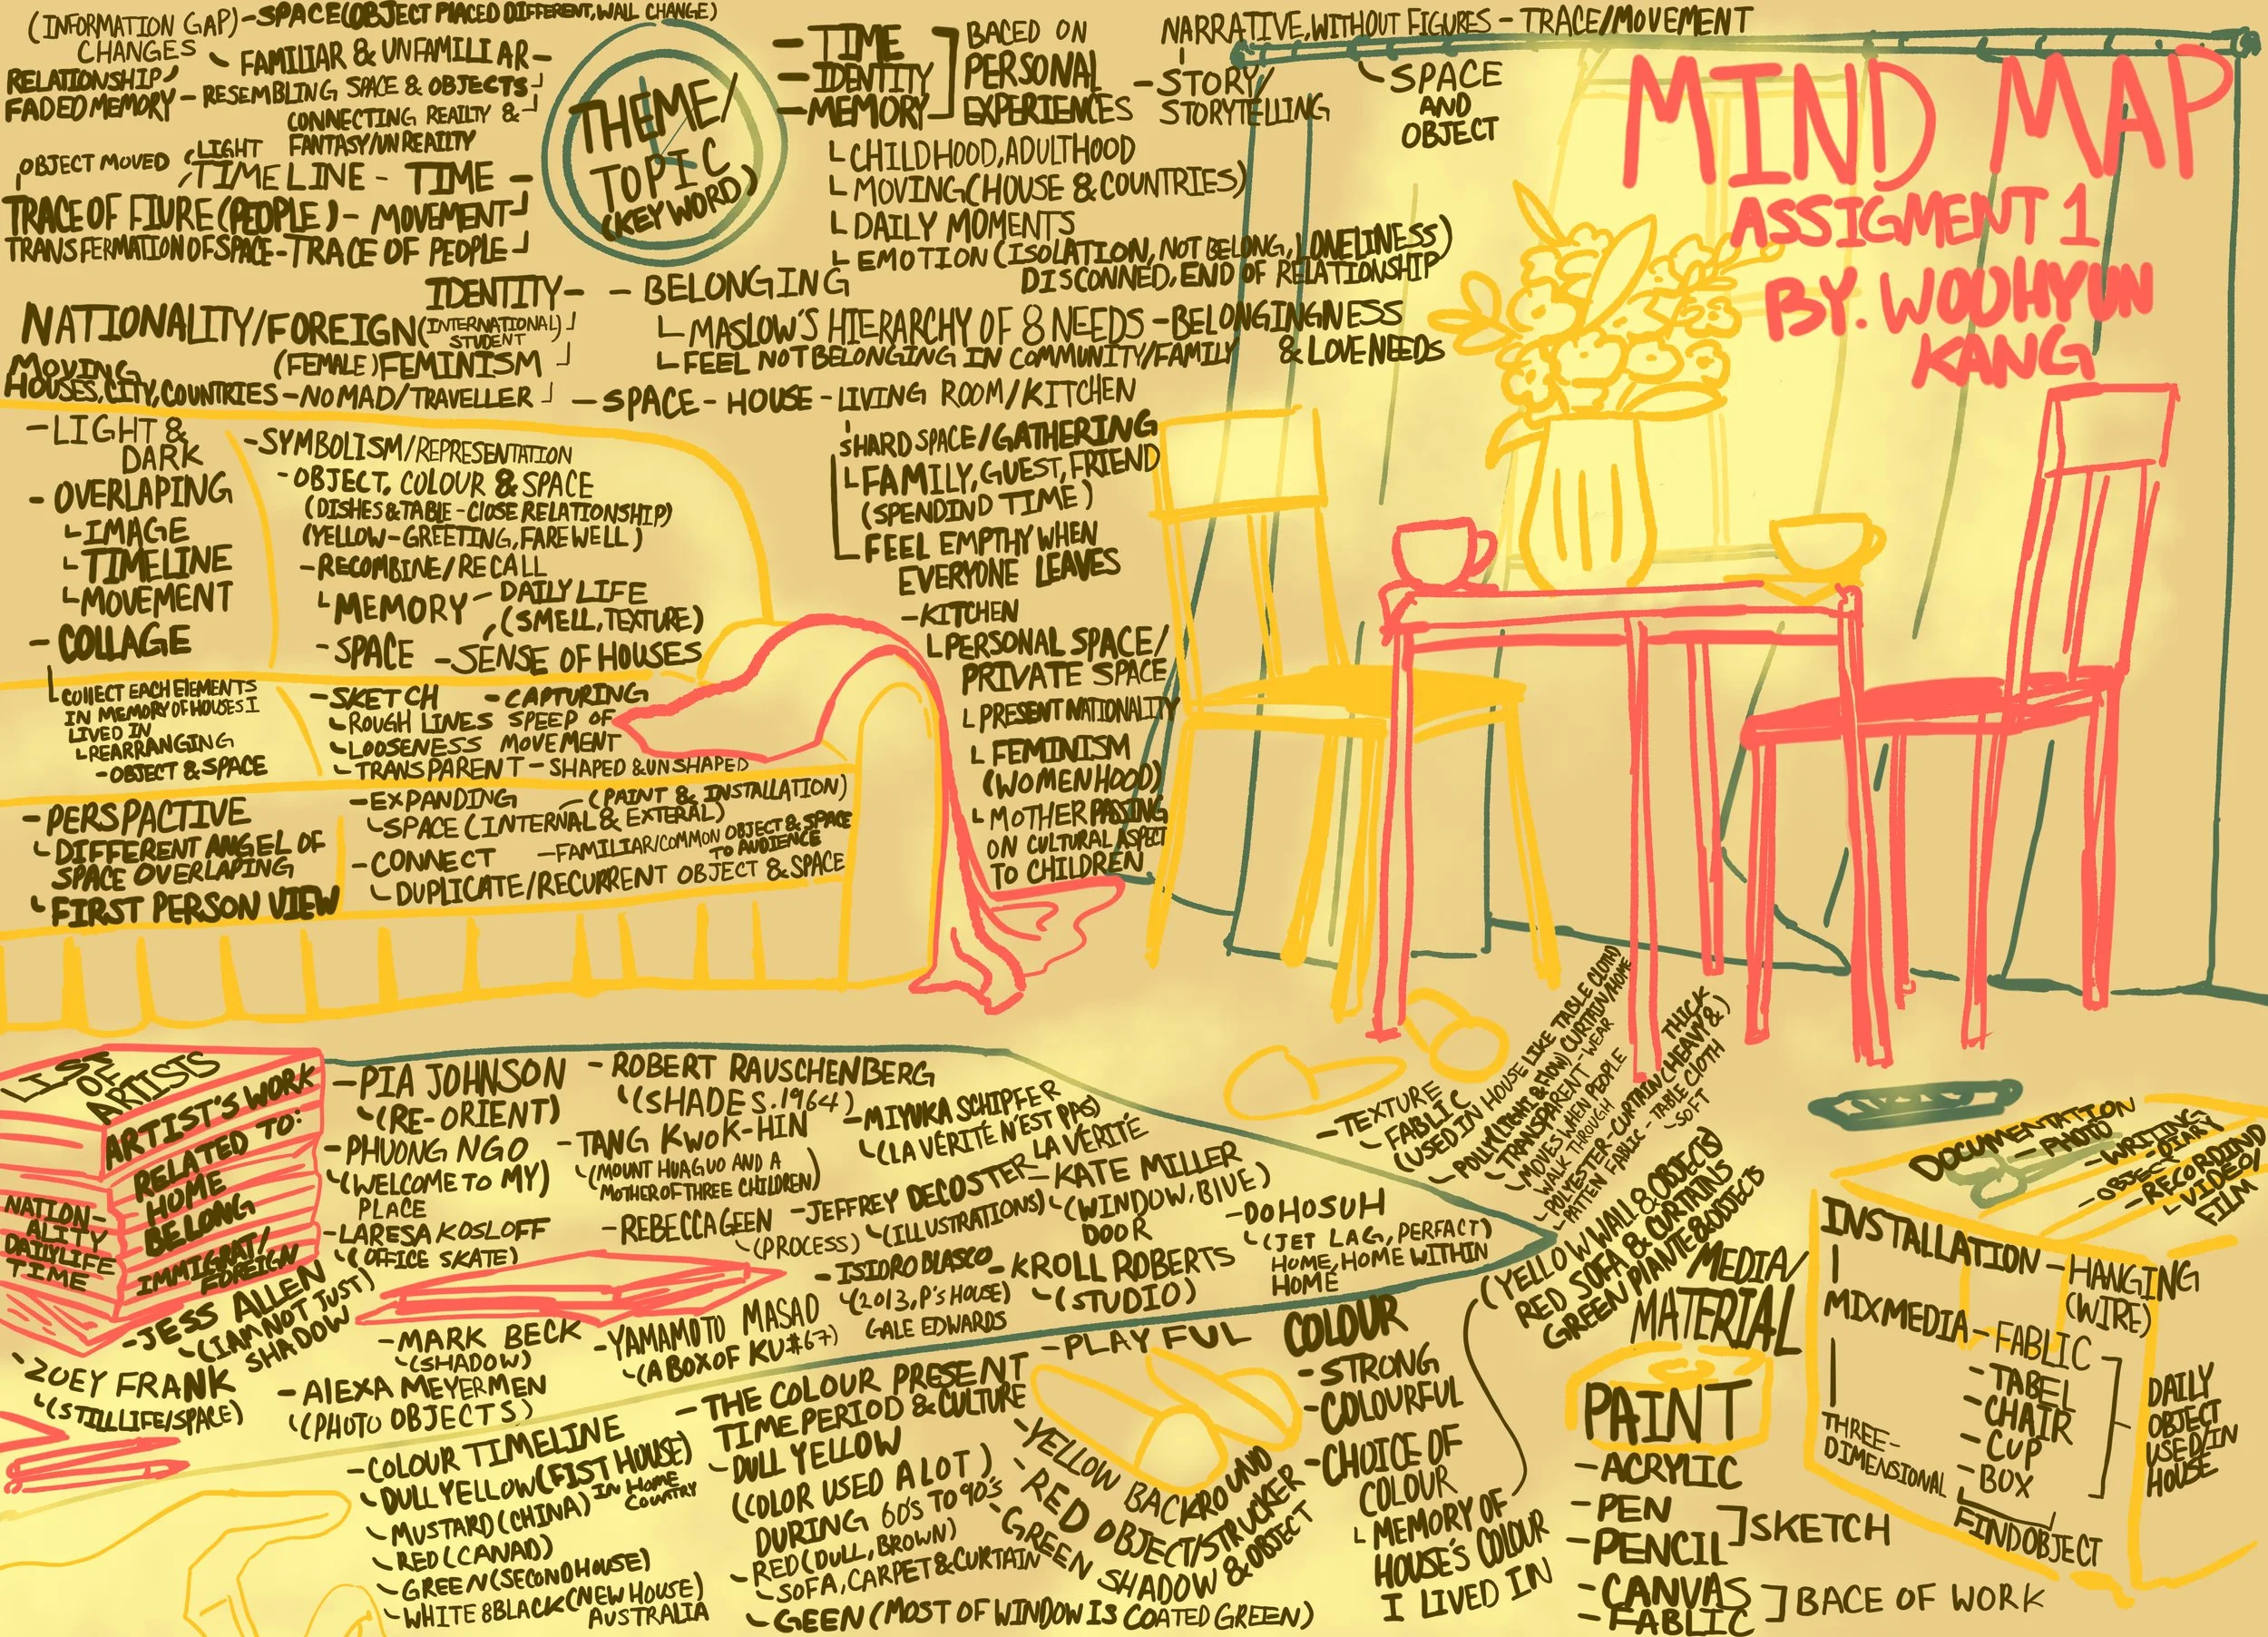 (INFORMATION GAP)-SPACE(OBJECT PLACED DIFFERENT, WALL CHANGE)
CHANGES - FAMILIAR & UNFAMILIAR -
RELATIONSHIP
FADED MEMORY - RESEMBLING SPACE & OBJECTS
CONNECTING REAILTY &
FANTASY/UNREAITY
OBJECT MOVED LIGHT
TIME LINE - TIME -
TRACE OF FIURE (PEOPLE) - MOVEMENT
TRANSFERMATION OF SPACE - TRACE OF PEOPLE
THEME/
TOPIC
(KEY WORD)
- TIME
- IDENTITY
- MEMORY
BACED ON
PERSONAL
EXPERIENCES
NARRATIVE, WITHOUT FIGURES - TRACE/MOVEMENT
- STORY/
STORYTELLING
SPACE
AND
OBJECT
CHILDHOOD, ADULTHOOD
MOVING (HOUSE & COUNTRIES)
DAILY MOMENTS
EMOTION (ISOLATION, NOT BELONG, LONELINESS)
DISCONNED, END OF RELATIONSHIP
MIND MAP
ASSIGMENT 1
BY. WOOHYUN
KANG
IDENTITY - - BELONGING
NATIONALITY/FOREIGN (INTERNATIONAL)
STUDENT
(FEMALE) FEMINISM
MOVING
HOUSES, CITY, COUNTRIES - NOMAD/TRAVELLER
MASLOW'S HIERARCHY OF 8 NEEDS - BELONGINGNESS
& LOVE NEEDS
FEEL NOT BELONGING IN COMMUNITY/FAMILY
- SPACE - HOUSE - LIVING ROOM/KITCHEN
SHARD SPACE/GATHERING
FAMILY, GUEST, FRIEND
(SPENDIND TIME)
FEEL EMPTHY WHEN
EVERYONE LEAVES
- KITCHEN
PERSONAL SPACE/
PRIVATE SPACE
PRESENT NATIONALITY
FEMINISM
(WOMENHOOD)
MOTHER PASSING
ON CULTURAL ASPECT
TO CHILDREN
- LIGHT &
DARK
- OVERLAPING
IMAGE
TIMELINE
MOVEMENT
- COLLAGE
COLLECT EACH ELEMENTS
IN MEMORY OF HOUSES I
LIVED IN
REARRANGING
- OBJECT & SPACE
- PERSPACTIVE
DIFFERENT ANGEL OF
SPACE OVERLAPING
FIRST PERSON VIEW
- SYMBOLISM/REPRESENTATION
- OBJECT, COLOUR & SPACE
(DISHES & TABLE - CLOSE RELATIONSHIP)
(YELLOW - GREETING, FAREWELL)
- RECOMBINE/RECALL
MEMORY - DAILY LIFE
(SMELL, TEXTURE)
- SPACE - SENSE OF HOUSES
- SKETCH - CAPTURING
ROUGH LINES SPEEP OF
LOOSENESS MOVEMENT
TRANSPARENT - SHAPED & UNSHAPED
- EXPANDING - (PAINT & INSTALLATION)
SPACE (INTERNAL & EXTERAL)
- CONNECT - FAMILIAR/COMMON OBJECT & SPACE
TO AUDIENCE
DUPLICATE/RECURRENT OBJECT & SPACE
LIST
OF
ARTISTS
ARTIST'S WORK
RELATED TO:
HOME
BELONG
IMMIGRAT/
FOREIGN
NATION-
ALITY
DAILYLIFE
TIME
- PIA JOHNSON
(RE-ORIENT)
- PHUONG NGO
(WELCOME TO MY)
PLACE
- LARESA KOSLOFF
(OFFICE SKATE)
- JESS ALLEN
(I AM NOT JUST)
SHADOW
- ZOEY FRANK
(STILL LIFE/SPACE)
- MARK BECK
(SHADOW)
- ALEXA MEYERMEN
(PHOTO OBJECTS)
- ROBERT RAUSCHENBERG
(SHADES. 1964)
- TANG KWOK-HIN
(MOUNT HUAGUO AND A
MOTHER OF THREE CHILDREN)
- REBECCA GEEN
(PROCESS)
- YAMAMOTO MASAO
(A BOX OF KU #67)
- MIYUKA SCHIPFER
(LA VÉRITÉ N'EST PAS)
LA VÉRITÉ
- JEFFREY DECOSTER
(ILLUSTRATIONS)
- ISIDRO BLASCO
(2013, P'S HOUSE)
GALE EDWARDS
- KATE MILLER
(WINDOW, BIVE)
DOOR
- KROLL ROBERTS
(STUDIO)
- DOHOSUH
(JET LAG, PERFACT)
HOME, HOME WITHIN
HOME
- TEXTURE
FABLIC
(USED IN HOUSE LIKE TABLE CLOTH)
- POLLY (LIGHT & FLOW) CURTAIN/HOME
TRANSPARENT - WEAR
MOVES WHEN PEOPLE
WALK THROUGH
POLYESTER - CURTAIN (HEAVY &)
THICK
PATTEN FABLIC - TABLE CLOTH
SOFT
(YELLOW WALL & OBJECTS)
RED SOFA & CURTAINS
GREEN PLANTE & OBJECTS
- COLOUR TIMELINE
DULL YELLOW (FIST HOUSE)
IN HOME
COUNTRY
MUSTARD (CHINA)
RED (CANAD)
GREEN (SECOND HOUSE)
WHITE & BLACK (NEW HOUSE)
AUSTRALIA
- THE COLOUR PRESENT
TIME PERIOD & CULTURE
- DULL YELLOW
(COLOR USED A LOT)
DURING 60'S TO 90'S
- RED (DULL, BROWN)
SOFA, CARPET & CURTAIN
GEEN (MOST OF WINDOW IS COATED GREEN)
- PLAYFUL
- YELLOW BACKROUND
- RED OBJECT/STRUCKER
- GREEN SHADOW & OBJECT
COLOUR
- STRONG
- COLOURFUL
- CHOICE OF
COLOUR
MEMORY OF
HOUSE'S COLOUR
I LIVED IN
MEDIA/
MATERIAL
PAINT
- ACRYLIC
- PEN
- PENCIL
SKETCH
- CANVAS
- FABLIC
BACE OF WORK
DOCUMENTATION
- PHOTO
- WRITING
- OBJECT DIARY
- RECORDIND
VIDEO/
FILM
INSTALLATION - HANGING
(WIRE)
MIXMEDIA - FABLIC
- TABEL
- CHAIR
- CUP
- BOX
FINDOBJECT
DAILY
OBJECT
USED/IN
HOUSE
THREE-
DIMENSIONAL